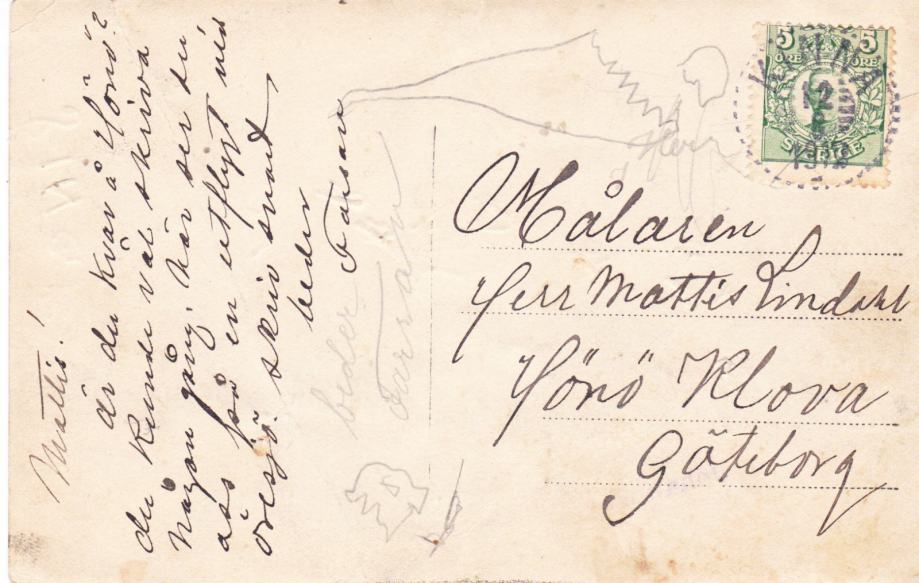 Mattis!
är du kvar å Hönö?
du kunde väl skriva
någon gång. här ser du
åss på en utflygt vid
öresjö. skriv snart
beder
Farsan
beder
Farsan
5 5
ÖRE ÖRE
SVERIGE
12
Herr
Målaren
Herr Mattis Lindahl
Hönö Klova
Göteborg